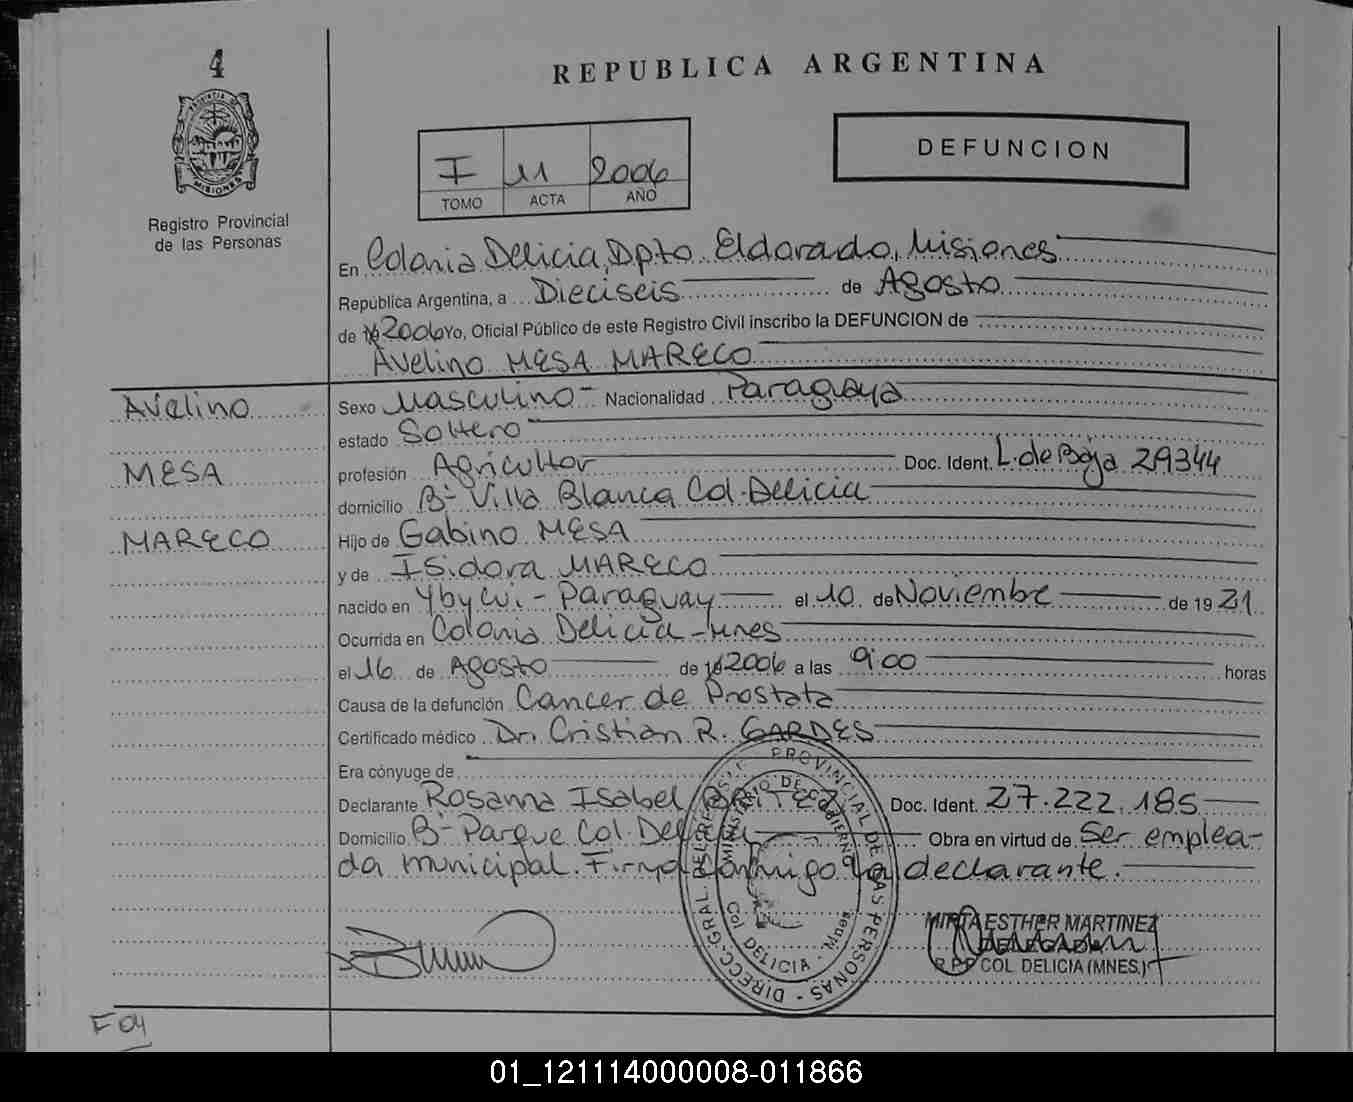 4
REPUBLICA ARGENTINA
PROVINCIA DE
MISIONES
Registro Provincial
de las Personas
I 11 2006
TOMO ACTA AÑO
DEFUNCION
En Colonia Delicia, Dpto Eldorado, Misiones
República Argentina, a Dieciseis de Agosto
de 19 2006 Yo, Oficial Público de este Registro Civil inscribo la DEFUNCION de
Avelino MESA MARECO
Avelino
MESA
MARECO
Sexo Masculino - Nacionalidad Paraguaya
estado Soltero
profesión Agricultor Doc. Ident. L. de Baja 29344
domicilio Bº Villa Blanca Col. Delicia
Hijo de Gabino MESA
y de Isidora MARECO
nacido en Ybycuí - Paraguay el 10 de Noviembre de 19 21
Ocurrida en Colonia Delicia - Mnes
el 16 de Agosto de 19 2006 a las 9:00 horas
Causa de la defunción Cancer de Prostata
Certificado médico Dr. Cristian R. GARDES
Era cónyuge de
Declarante Rosanna Isabel BRITEZ Doc. Ident. 27.222.185
Domicilio Bº Parque Col. Delicia Obra en virtud de Ser emplea-
da municipal. Firma conmigo la declarante.
DIRECC. GRAL. DEL REGIST. PROVINCIAL DE LAS PERSONAS -
MINISTERIO DE GOBIERNO
Col DELICIA - Mnes
MIRTA ESTHER MARTINEZ
R.P.P COL. DELICIA (MNES.)
F 04
01_121114000008-011866